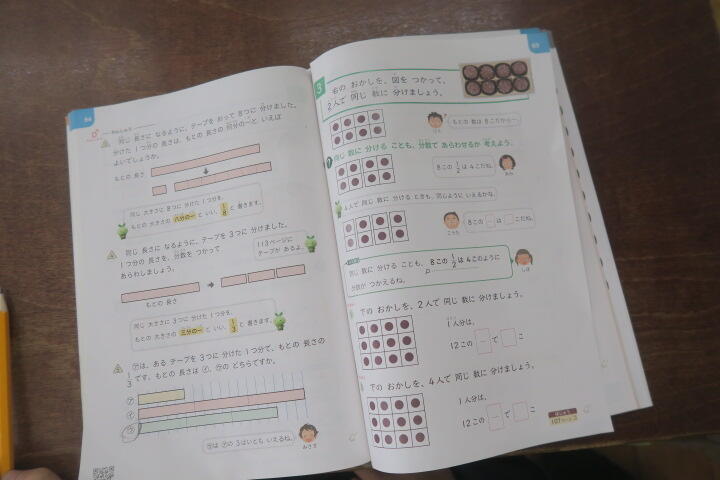 94
同じ 長さに なるように、テープを おって 8つに 分けました。
分けた 1つ分の 長さは、もとの 長さの 何分の一と いえば
よいでしょうか。
もとの 長さ
同じ 大きさに 8つに 分けた 1つ分を、
もとの 大きさの 八分の一 と いい、1/8 と 書きます。
同じ 長さに なるように、テープを 3つに 分けました。
1つ分の 長さを、分数を つかって
あらわしましょう。
113ページに
テープが あるよ。
もとの 長さ
同じ 大きさに 3つに 分けた 1つ分を、
もとの 大きさの 三分の一 と いい、1/3 と 書きます。
㋐は、ある テープを 3つに 分けた 1つ分で、もとの 長さの
1/3 です。もとの 長さは ㋑、㋒の どちらですか。
㋐
㋑
㋒
㋒は ㋐の 3ばいとも いえるね。
みさき
95
3
右の おかしを、図を つかって、
2人で 同じ 数に 分けましょう。
もとの 数は 8こだから…
同じ 数に 分ける ことも、分数で あらわせるか 考えよう。
8この 1/2 は 4こだね。
あみ
4人で 同じ 数に 分ける ときも、同じように いえるかな。
8この は こだね。
こうた
同じ 数に 分ける ことも、8この 1/2 は 4このように
分数が つかえるね。
しほ
下の おかしを、2人で 同じ 数に 分けましょう。
1人分は、
12この で こ
下の おかしを、4人で 同じ 数に 分けましょう。
1人分は、
12この で こ
107ページ